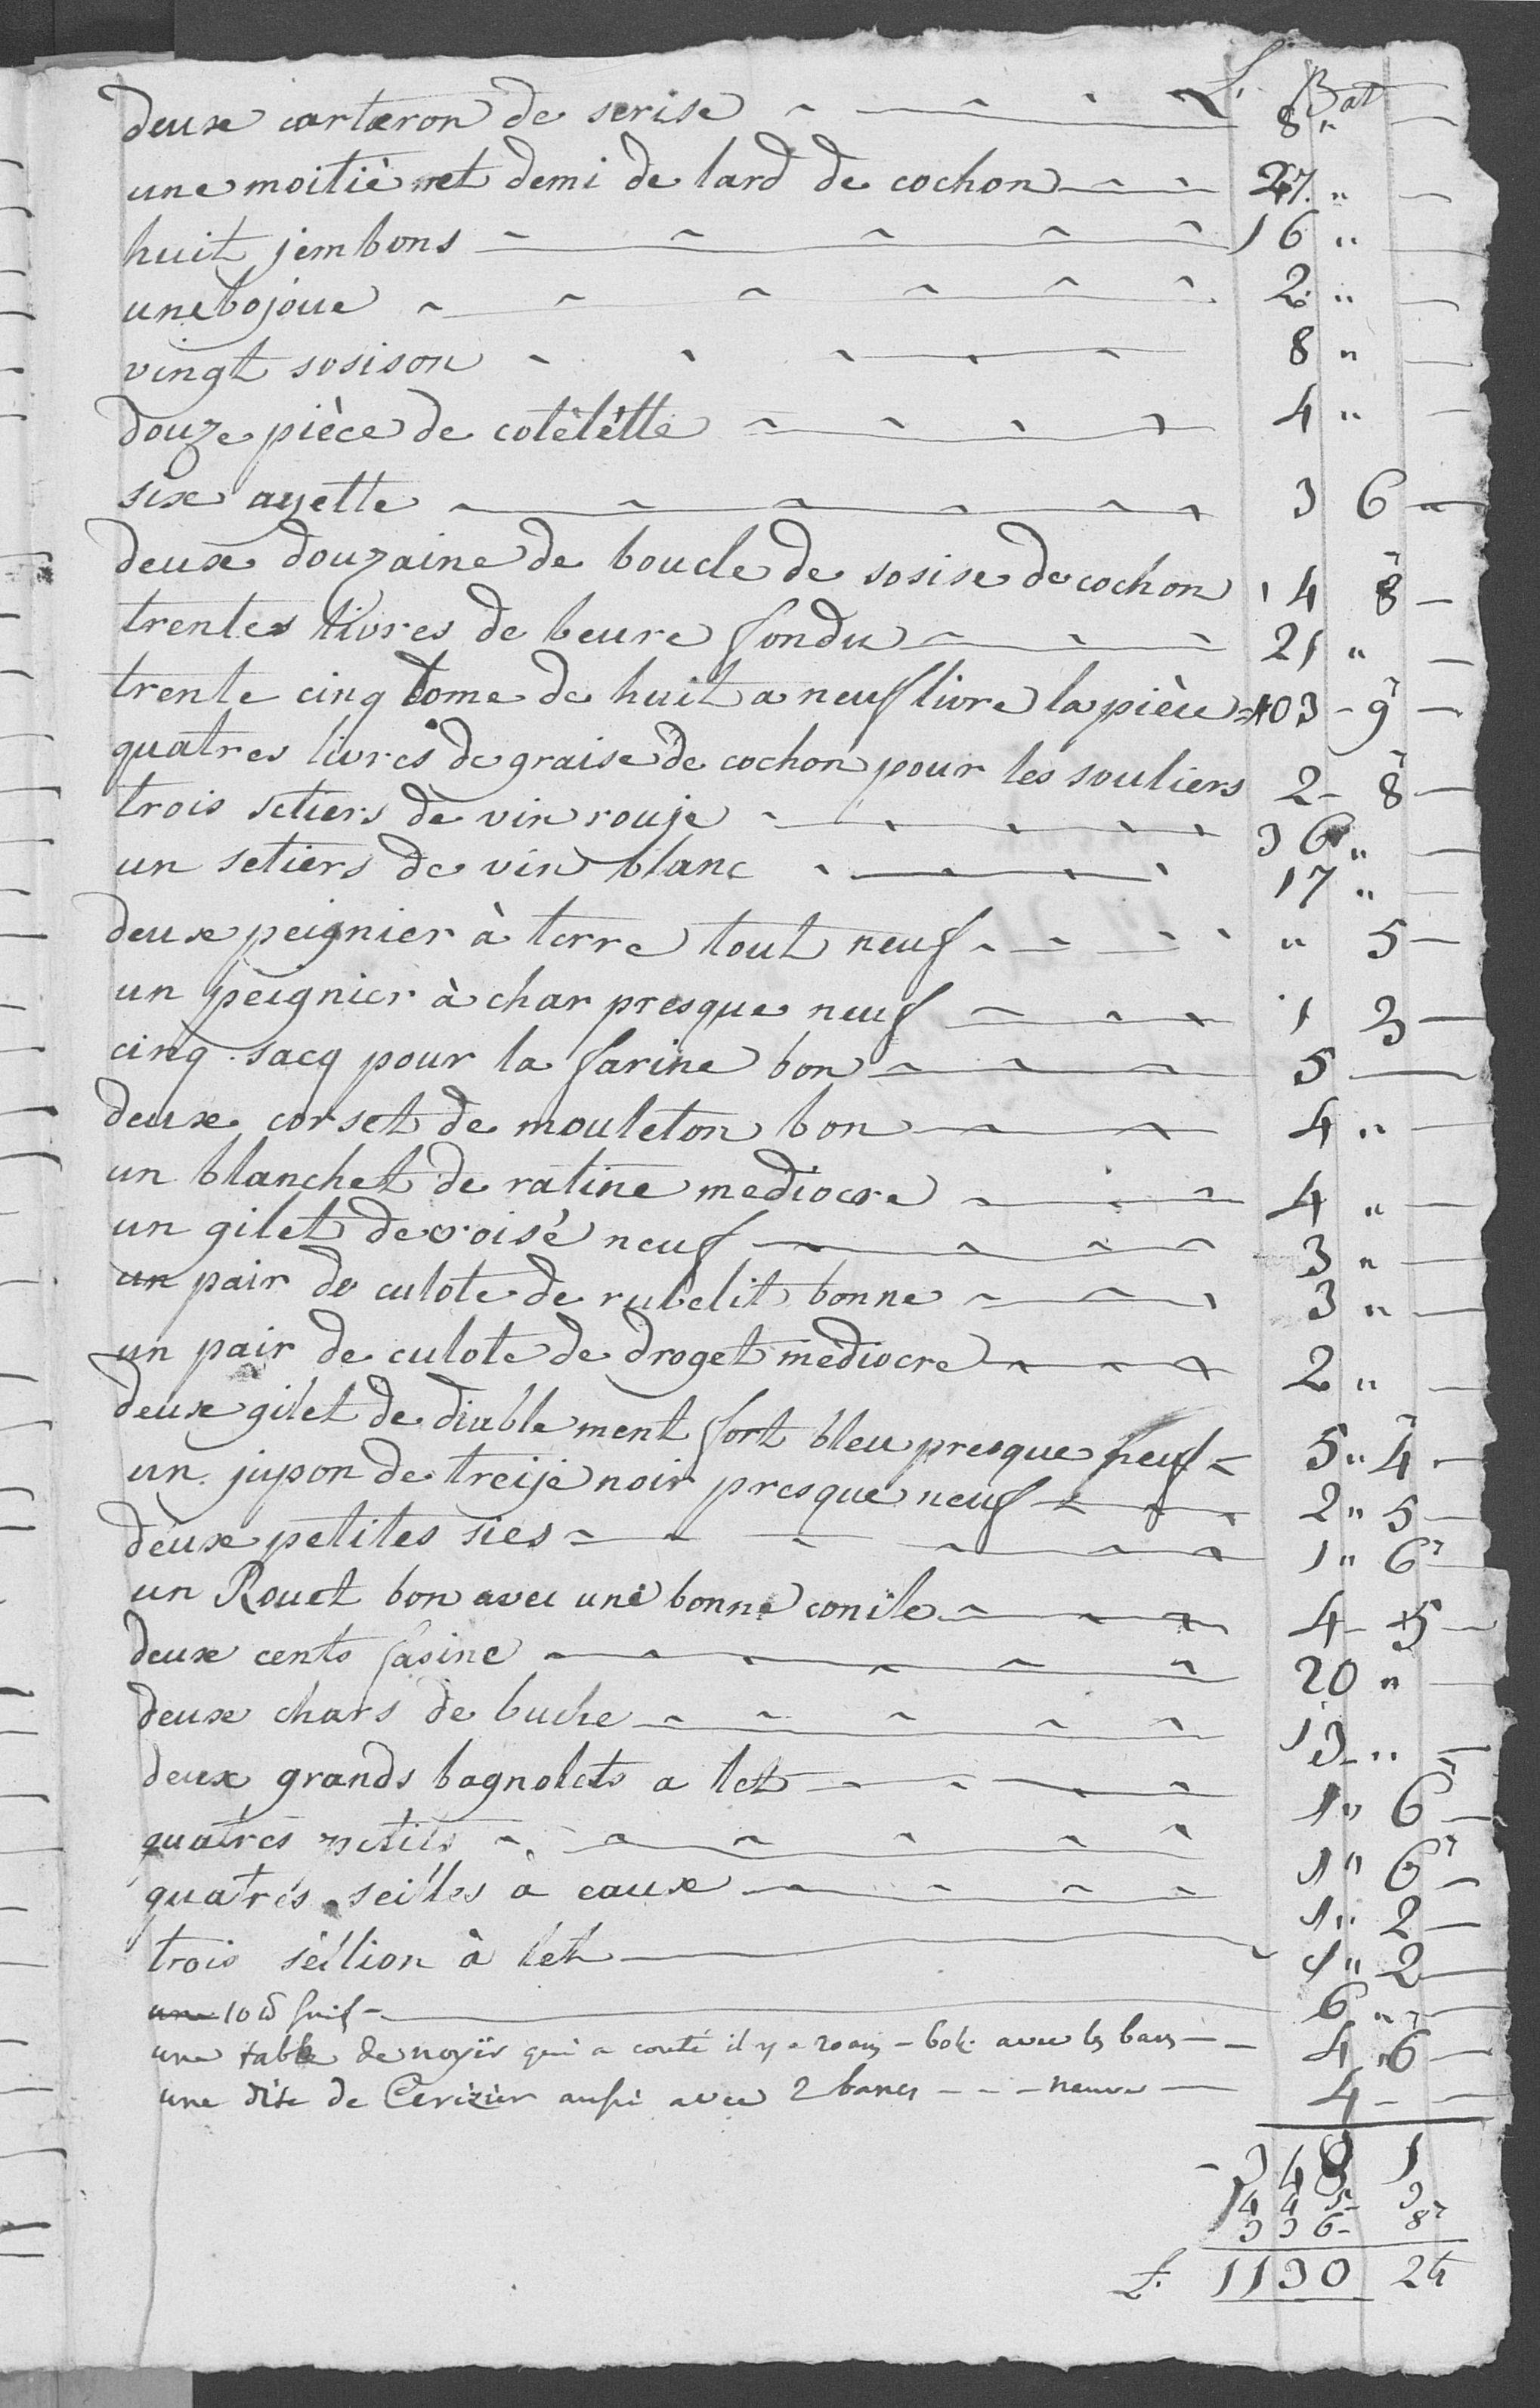 L. Bat
deux carteron de serise 8 "
une moitiè et demi de lard de cochon 27 "
huit jembons 16 "
une bojoue 2 "
vingt sosison 8 "
douze pièce de cotèlètte 4 "
six ayette 3 6
deux douzaine de boucle de sosise de cochon 4 8
trentes livres de beure fondu 21 "
trente cinq tome de huit a neuf livre la pièce 103 - 9
quatres livres de graise de cochon pour les souliers 2 - 8
trois setiers de vin rouje 36 "
un setiers de vin blanc 17 "
deux peignier à terre tout neuf " 5
un peignier à char presque neuf 1 3
cinq sacq pour la farine bon 5
deux corset de mouleton bon 4 "
un blanchet de ratine mediocre 4 "
un gilet de croisé neuf 3 "
un pair de culote de rubelit bonne 3 "
un pair de culote de droget mediocre 2 "
deux gilet de diable ment fort bleu presque neuf 5 " 4
un jupon de treije noir presque neuf 2 " 5
deux petites sies 1 " 6
un Rouet bon avec une bonne conile 4 - 5
deux cents fasine 20 "
deux chars de buche 13 "
deux grands bagnolets a let 1 " 6
quatres petits 1 " 6
quatres seilles à eaux 1 " 2
trois sèilion à let 1 " 2
une 10 ℔ suif 6 "
une table de noyir qui a couté il y a 20 ans avec ls bans 4 " 6
une dite de Cerizier aussi avec 2 bancs neuve 4 -
348 1
445 - 3
336 - 8
L. 1130 2